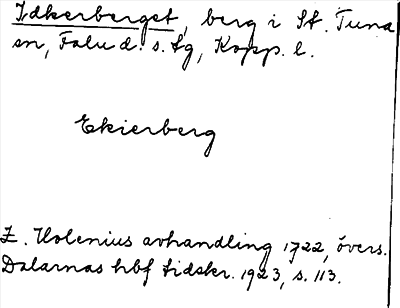 Idkerberget, berg i St. Tuna
sn, Falu d. s. tg, Kopp. l.
Ekierberg
E. Holenius avhandling 1722, övers.
Dalarnas hbf tidskr. 1923, s. 113.